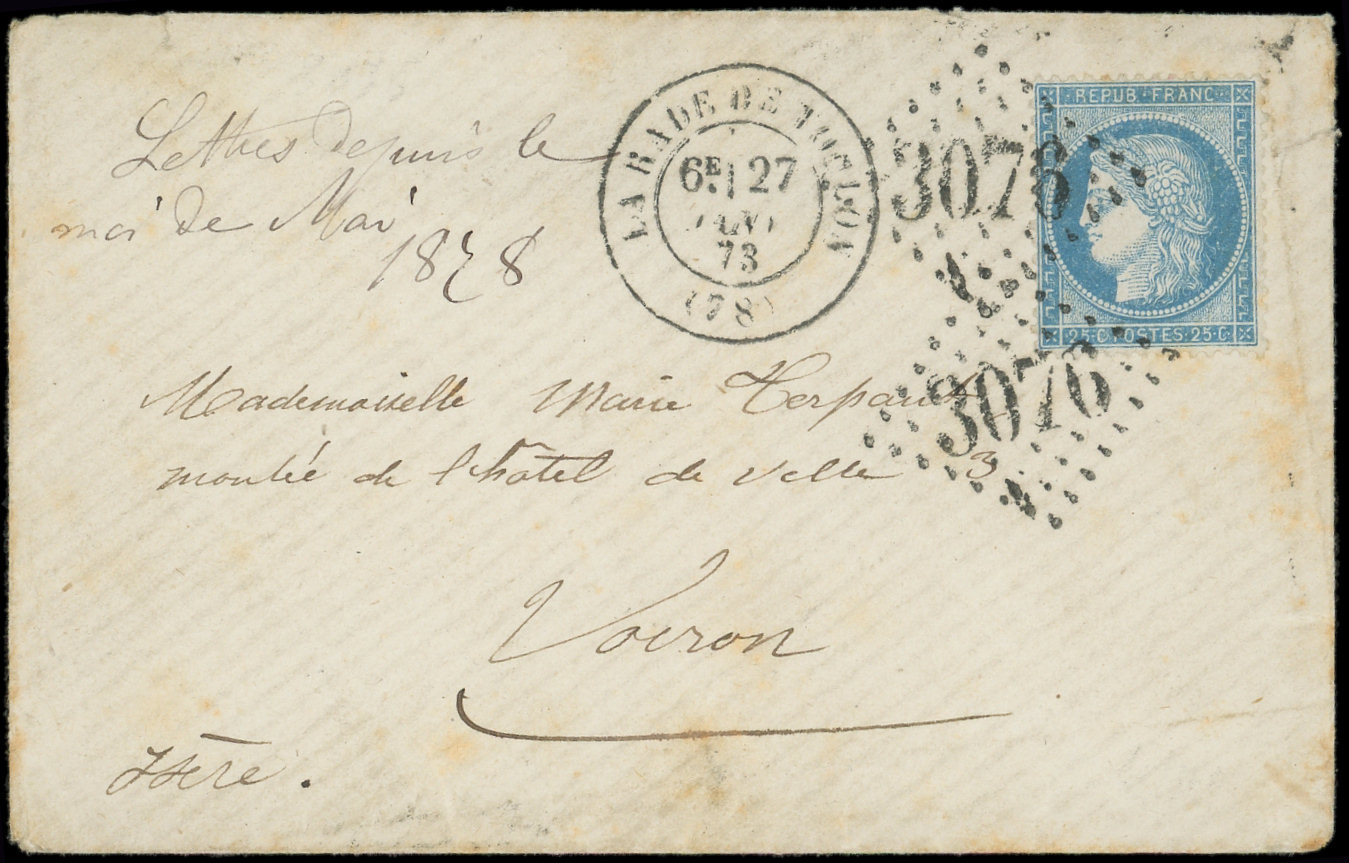 Lettres depuis le
moi de Mai
1878
LA RADE DE TOULON
6E 27
JANV
73
(78)
3076
REPUB·FRANC
25·C·POSTES·25·C
3076
Mademoiselle Marie
montée de l'hôtel de ville 3
Voiron
Isère.